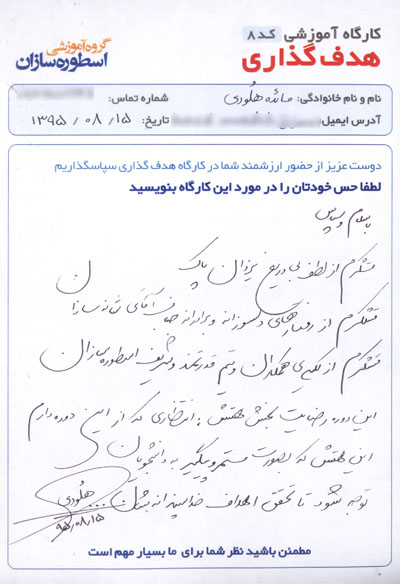 کارگاه آموزشی کد ۸
هدف گذاری
گروه آموزشی
اسطوره سازان
نام و نام خانوادگی: مائده هلودی
شماره تماس:
آدرس ایمیل:
تاریخ: ۱۳۹۵/۰۸/۱۵
دوست عزیز از حضور ارزشمند شما در کارگاه هدف گذاری سپاسگذاریم
لطفا حس خودتان را در مورد این کارگاه بنویسید
باسلام و سپاس
متشکرم از لطف بی دریغ یزدان پاک
متشکرم از رفتارهای دلسوزانه و برادرانه جناب آقای شانه سازان
متشکرم از کلیه‌ی همکاران و تیم قدرتمند و شریف اسطوره سازان
این دوره رضایت بخش هستش. انتظاری که از این دوره دارم
این هستش که بصورت مستمر و پیگیر به دانشجویان
توجه شود تا تحقق اهداف خداپسندانه شان...
هلودی
۹۵/۰۸/۱۵
مطمئن باشید نظر شما برای ما بسیار مهم است